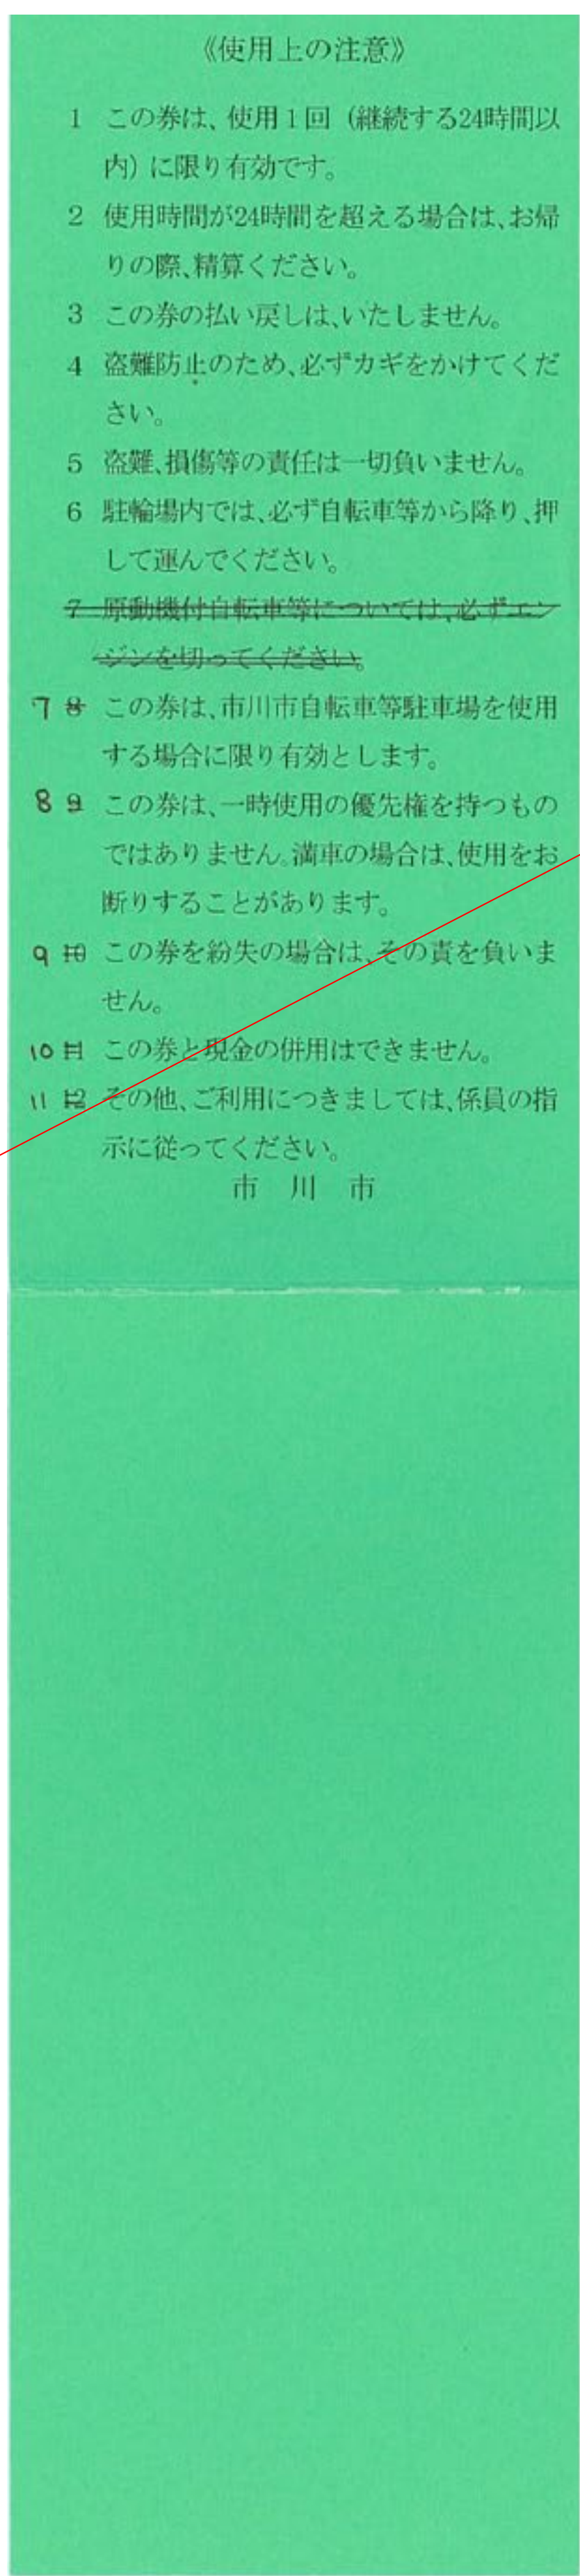 《使用上の注意》
1 この券は、使用1回（継続する24時間以
内）に限り有効です。
2 使用時間が24時間を超える場合は、お帰
りの際、精算ください。
3 この券の払い戻しは、いたしません。
4 盗難防止のため、必ずカギをかけてくだ
さい。
5 盗難、損傷等の責任は一切負いません。
6 駐輪場内では、必ず自転車等から降り、押
して運んでください。
7 原動機付自転車等については、必ずエン
ジンを切ってください。
7 8 この券は、市川市自転車等駐車場を使用
する場合に限り有効とします。
8 9 この券は、一時使用の優先権を持つもの
ではありません。満車の場合は、使用をお
断りすることがあります。
9 10 この券を紛失の場合は、その責を負いま
せん。
10 11 この券と現金の併用はできません。
11 12 その他、ご利用につきましては、係員の指
示に従ってください。
市 川 市